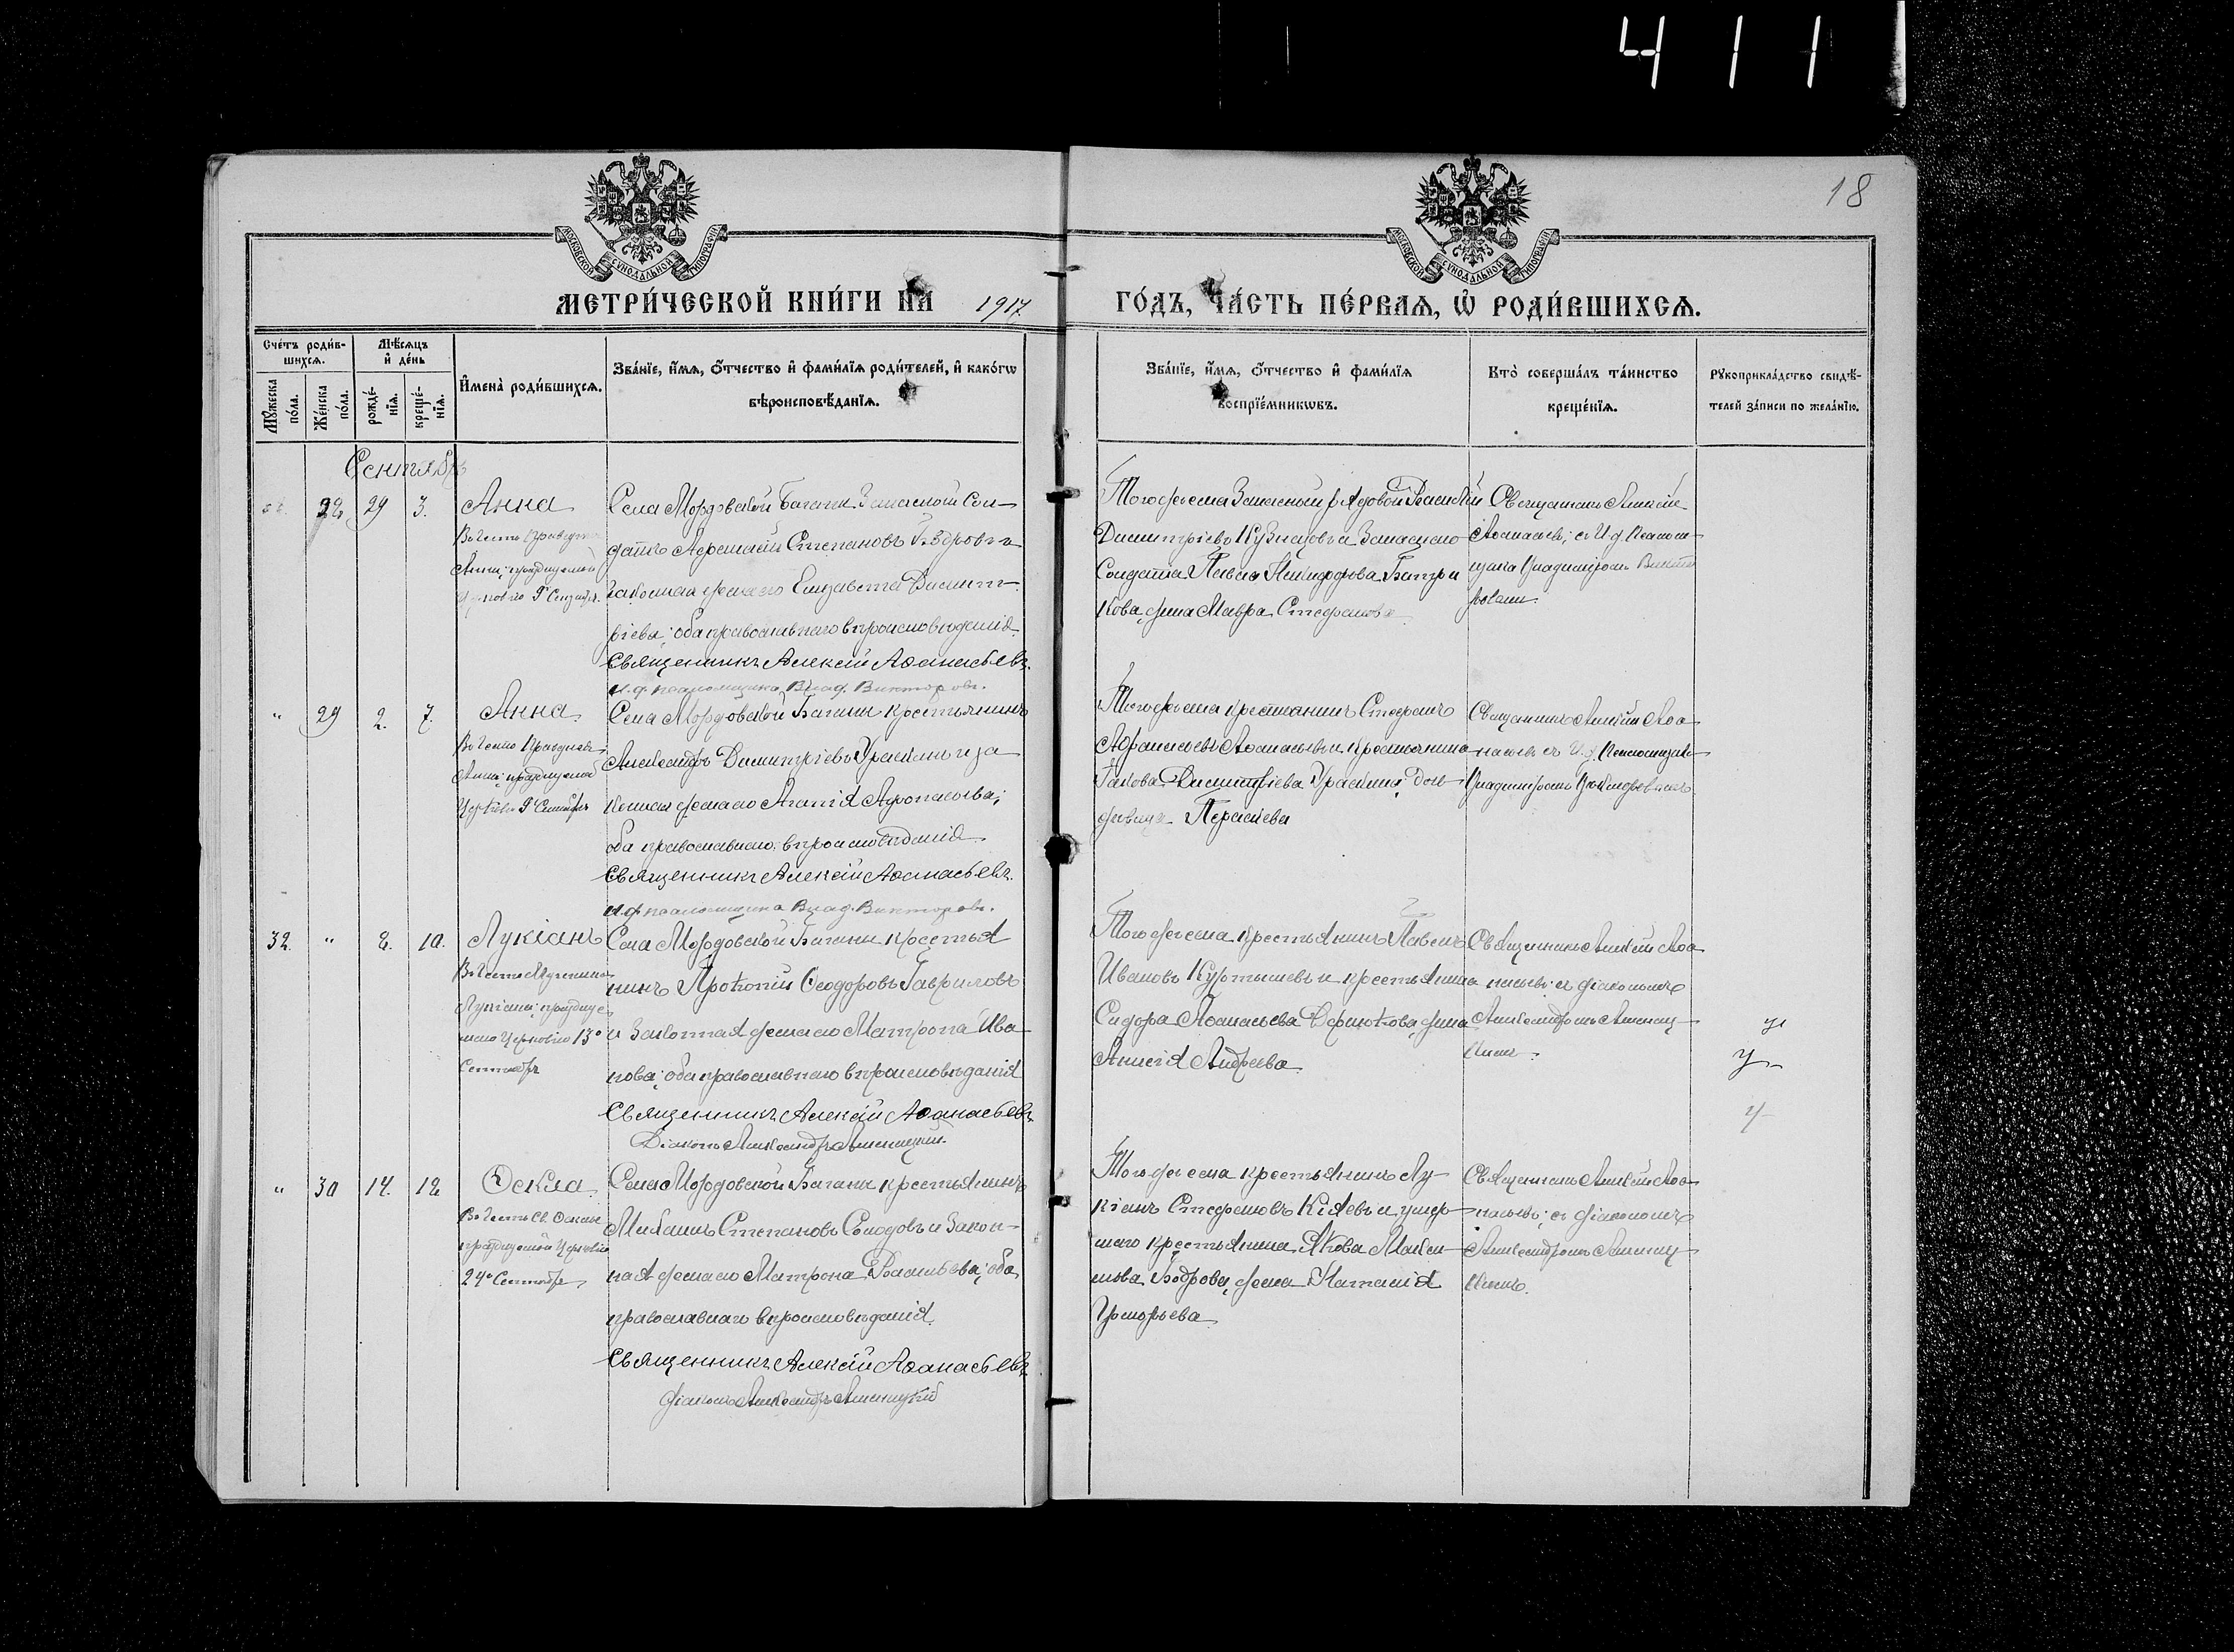 411
18
МОСКОВСКОЙ СѴНОДАЛЬНОЙ ТИПОГРАФІИ
МОСКОВСКОЙ СѴНОДАЛЬНОЙ ТИПОГРАФІИ
МЕТРИ́ЧЕСКОЙ КНИ́ГИ НА 1917 ГО́ДЪ, ЧА́СТЬ ПЕ́РВАѦ, Ѡ҆ РОДИ́ВШИХСѦ.
Сче́тъ роди́в-
шихсѧ.
Мꙋ́жеска по́ла.
Же́нска по́ла.
Мѣ́сѧцъ
и҆ де́нь
рожде́-
нїѧ.
креще́-
нїѧ.
И҆мена̀ роди́вшихсѧ.
Зва́нїе, и҆́мѧ, ѻ҆́тчество и҆ фами́лїѧ роди́телей, и҆ како́гѡ
вѣроисповѣ́данїѧ.
Зва́нїе, и҆́мѧ, ѻ҆́тчество и҆ фами́лїѧ
воспрїе́мникѡвъ.
Кто̀ соверша́лъ та́инство
креще́нїѧ.
Рꙋкоприкла́дство свидѣ́-
телей за́писи по жела́нїю.
Сентябрь
28 29 3.
Анна
Въ честь праведн.
Анны; празднуемой
Церковію 9 Сентябр.
Села Мордовской Багани Запасной Сол-
датъ Степановъ Бодровъ и
законная жена его Елизавета Димит-
ріева; оба православнаго вѣроисповѣданія.
Священникъ Алексій Аѳанасьевъ.
И.д. псаломщика Влад. Викторовъ.
Того же села Запасный рядовой Василій
Димитріевъ Кузнецовъ и Запаснаго
Солдата Павла Никифорова Батри
кова, жена Мавра Стефанова.
Священникъ Алексій
Аѳанасьевъ; съ И.д. Псалом-
щика Владиміромъ Викто
ровым.
" 29 2. 7.
Анна.
Въ честь Праведныя
Анны; празднуемой
Церковію 9 Сентября
Села Мордовской Багани крестьянинъ
Александръ Димитріевъ Ураскинъ и за
конная жена его Агапія Афонасьева;
оба православнаго вѣроисповѣданія.
Священникъ Алексій Аѳанасьевъ.
И.д. псаломщика Влад. Викторовъ.
Того же села крестьянинъ Стефанъ
Аѳанасьевъ и крестьянина
Іакова Димитріева Ураскина, дочь
дѣвица
Священникъ Алексій Аѳа
насьевъ съ И.д. Псаломщика
Владиміромъ
32. " 8. 10.
Лукіанъ
Въ честь Мученика
Лукіана; празднуе
маго Церковію 13го
Сентября
Села Мордовской Багани крестья
нинъ Прокопій Ѳеодоровъ Гавриловъ
и Законная жена его Матрона Ива
нова; оба православнаго вѣроисповѣданія
Священникъ Алексій Аѳанасьевъ.
Діаконъ Александръ
Того же села крестьянинъ Павелъ
Ивановъ Куртышевъ и крестьянина
Сидора Аѳанасьева жена
Анисія Андреева.
Священникъ Алексій Аѳа
насьевъ; съ діакономъ
Александромъ
" 30 14. 18
Ѳекла.
Въ честь Св. Ѳеклы
празднуемой Церковію
24го Сентября
Села Мордовской Багани крестьянинъ
Михаилъ Степановъ Солодовъ и Закон-
ная жена его Матрона Васильева; оба
православнаго вѣроисповѣданія.
Священникъ Алексій Аѳанасьевъ.
діаконъ Александръ
Того же села крестьянинъ Лу-
кіанъ Стефановъ Кіяевъ и умер-
шаго крестьянина Якова Макси-
мова Бодрова, жена Наталія
Григорьева.
Священникъ Алексій Аѳа-
насьевъ; съ діакономъ
Александромъ